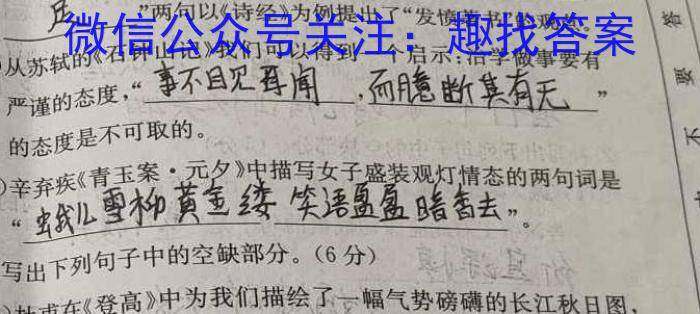 后”两句以《诗经》为例提出了“发愤著书”的观
微信公众号关注：趣找答案
从苏轼的《石钟山记》我们可以得到一个启示：治学做事要有
严谨的态度，“事不目见耳闻，而臆断其有无”
的态度是不可取的。
辛弃疾《青玉案·元夕》中描写女子盛装观灯情态的两句词是
“蛾儿雪柳黄金缕 笑语盈盈暗香去”。
写出下列句子中的空缺部分。(6分)
甫在《登高》中为我们描绘了一幅气势磅礴的长江秋日图，
答
要
不